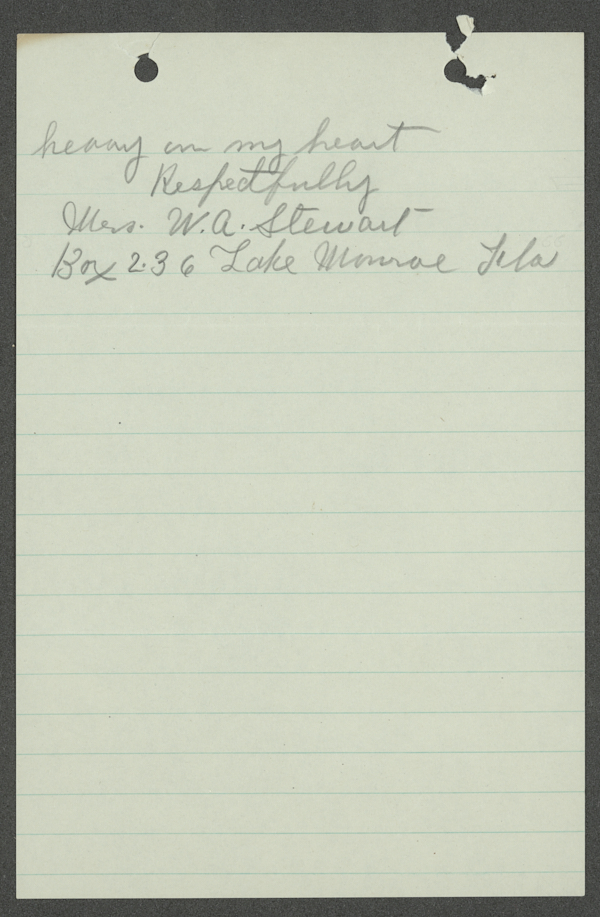 heavy on my heart
Respectfully
Mrs. W.A. Stewart
Box 236 Lake Monroe Fla